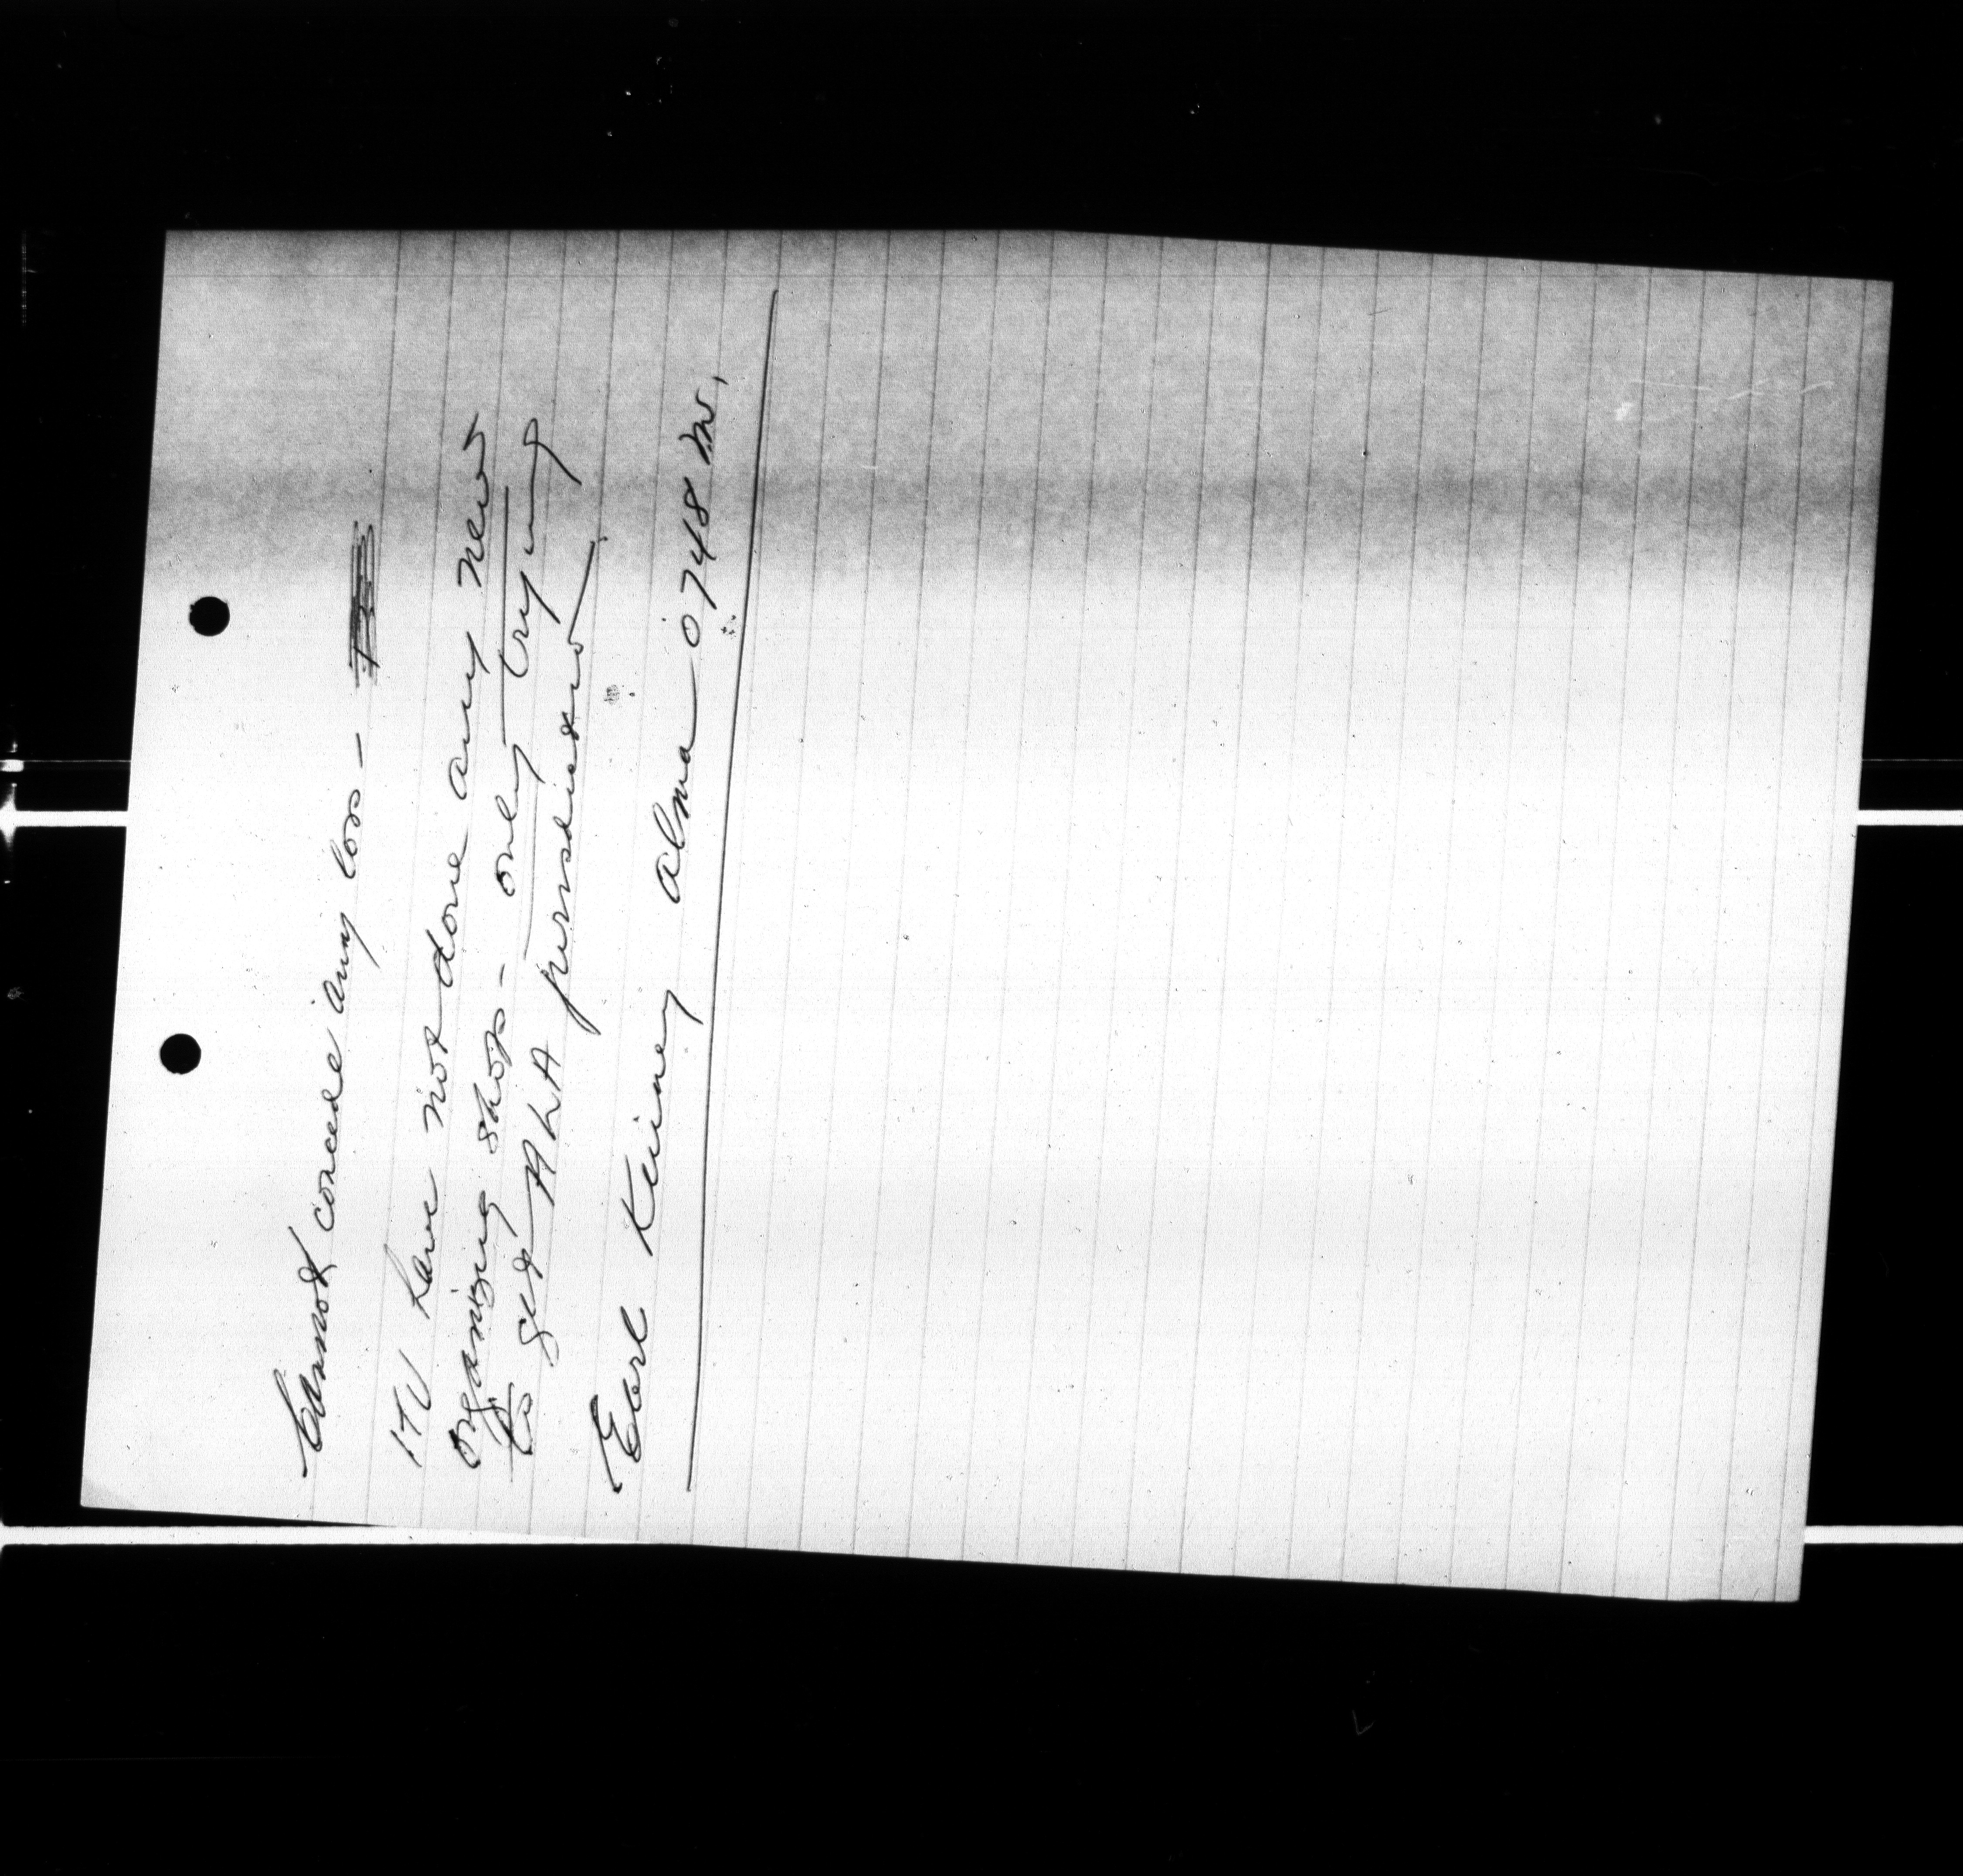 Cannot concede any loss -
ITU have not done any new
organizing shops - only trying
to get ALA jurisdiction.
Earl Kinney Alma 0748 M.